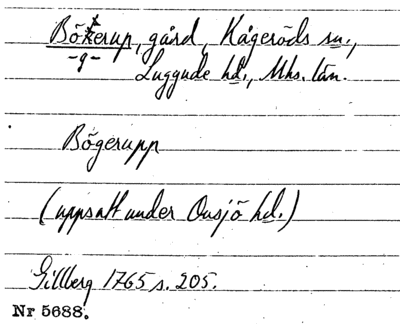 Bökerup, gård, Kågeröds sn.,
-g-
Luggude hd., Mhs. län.
Bögerupp
(uppsatt under Onsjö hd.)
Gillberg 1765 s. 205.
Nr 5688.